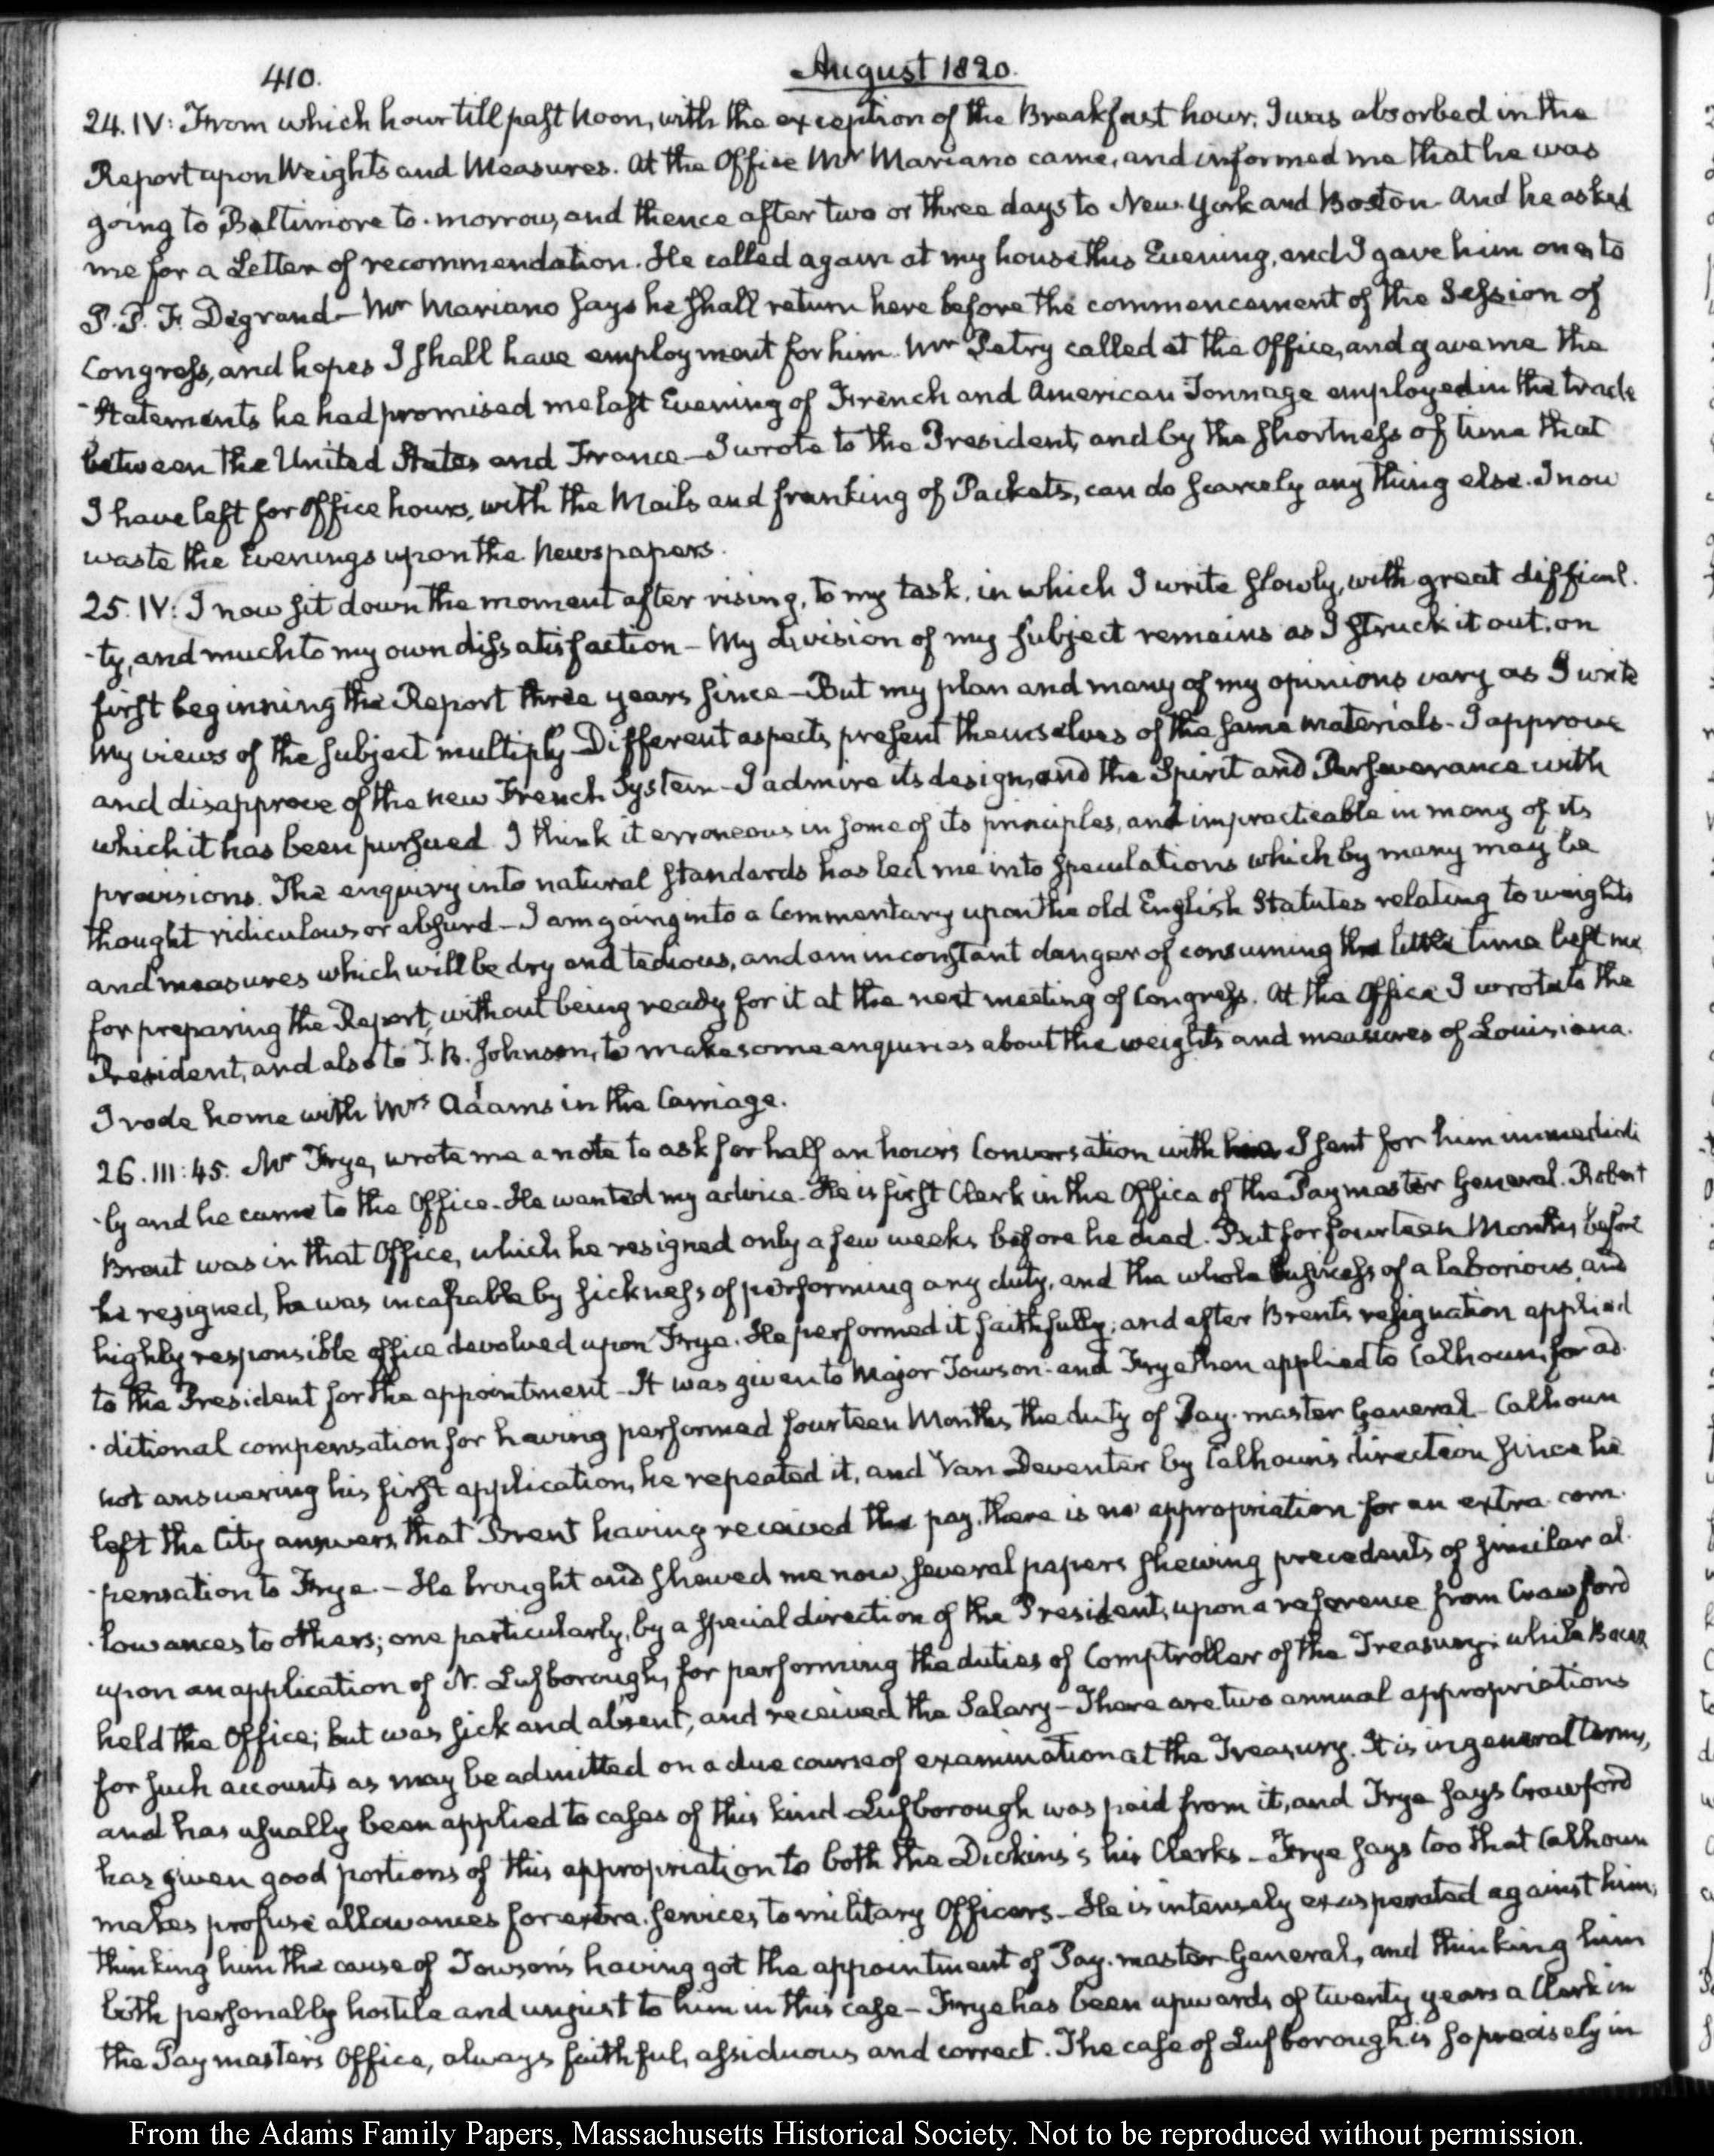 410.
August 1820.
24. IV: From which hour till past Noon, with the exception of the Breakfast hour, I was absorbed in the
Report upon Weights and Measures. At the Office Mr Mariano came, and informed me that he was
going to Baltimore to-morrow, and thence after two or three days to New-York and Boston. And he asked
me for a Letter of recommendation. He called again at my house this Evening, and I gave him one, to
P. P. F. Degrand— Mr Mariano says he shall return here before the commencement of the Session of
Congress, and hopes I shall have employment for him. Mr Petry called at the Office, and gave me the
Statements he had promised me last Evening of French and American Tonnage employed in the trade
between the United States and France— I wrote to the President, and by the shortness of time that
I have left for Office hours, with the Mails and franking of Packets, can do scarcely any thing else. I now
waste the Evenings upon the Newspapers.
25. IV: I now sit down the moment after rising, to my task, in which I write slowly, with great difficul-
-ty, and much to my own dissatisfaction— My division of my subject remains as I struck it out, on
first beginning the Report three years since— But my plan and many of my opinions vary as I write
My views of the subject multiply— Different aspects present themselves of the same materials— I approve
and disapprove of the new French System— I admire its design, and the Spirit and Perseverance with
which it has been pursued. I think it erroneous in some of its principles, and impracticable in many of its
provisions. The enquiry into natural standards has led me into speculations which by many may be
thought ridiculous or absurd— I am going into a Commentary upon the old English Statutes relating to weights
and measures which will be dry and tedious, and am in constant danger of consuming the little time left me
for preparing the Report, without being ready for it at the next meeting of Congress. At the Office I wrote to the
President, and also to T. B. Johnson, to make some enquiries about the weights and measures of Louisiana.
I rode home with Mrs Adams in the Carriage.
26. III: 45. Mr Frye, wrote me a note to ask for half an hour's Conversation with I sent for him immediate
-ly and he came to the Office. He wanted my advice. He is first Clerk in the Office of the Paymaster General. Robert
Brent was in that Office, which he resigned only a few weeks before he died. But for fourteen Months before
he resigned, he was incapable by sickness of performing any duty, and the whole business of a laborious and
highly responsible office devolved upon Frye. He performed it faithfully; and after Brent's resignation applied
to the President for the appointment— It was given to Major Towson: and Frye then applied to Calhoun, for ad-
-ditional compensation for having performed fourteen Months the duty of Pay-master General— Calhoun
not answering his first application, he repeated it, and Van Deventer by Calhoun's direction since he
left the City answers that Brent having received the pay, there is no appropriation for an extra com-
-pensation to Frye.— He brought and shewed me now, several papers shewing precedents of similar al-
-lowances to others; one particularly, by a special direction of the President, upon a reference from Crawford
upon an application of N. Lufborough, for performing the duties of Comptroller of the Treasury; while Bacon
held the Office; but was sick and absent, and received the Salary— There are two annual appropriations
for such accounts as may be admitted on a due course of examination at the Treasury. It is in general terms,
and has usually been applied to cases of this kind— Lufborough was paid from it, and Frye says Crawford
has given good portions of this appropriation to both the Dickins's his Clerks— Frye says too that Calhoun
makes profuse allowances for extra-services to military Officers— He is intensely exasperated against him;
thinking him the cause of Towson's having got the appointment of Pay-master General, and thinking him
both personally hostile and unjust to him in this case— Frye has been upwards of twenty years a Clerk in
the Paymaster's Office, always faithful, assiduous and correct. The case of Lufborough is so precisely in
From the Adams Family Papers, Massachusetts Historical Society. Not to be reproduced without permission.